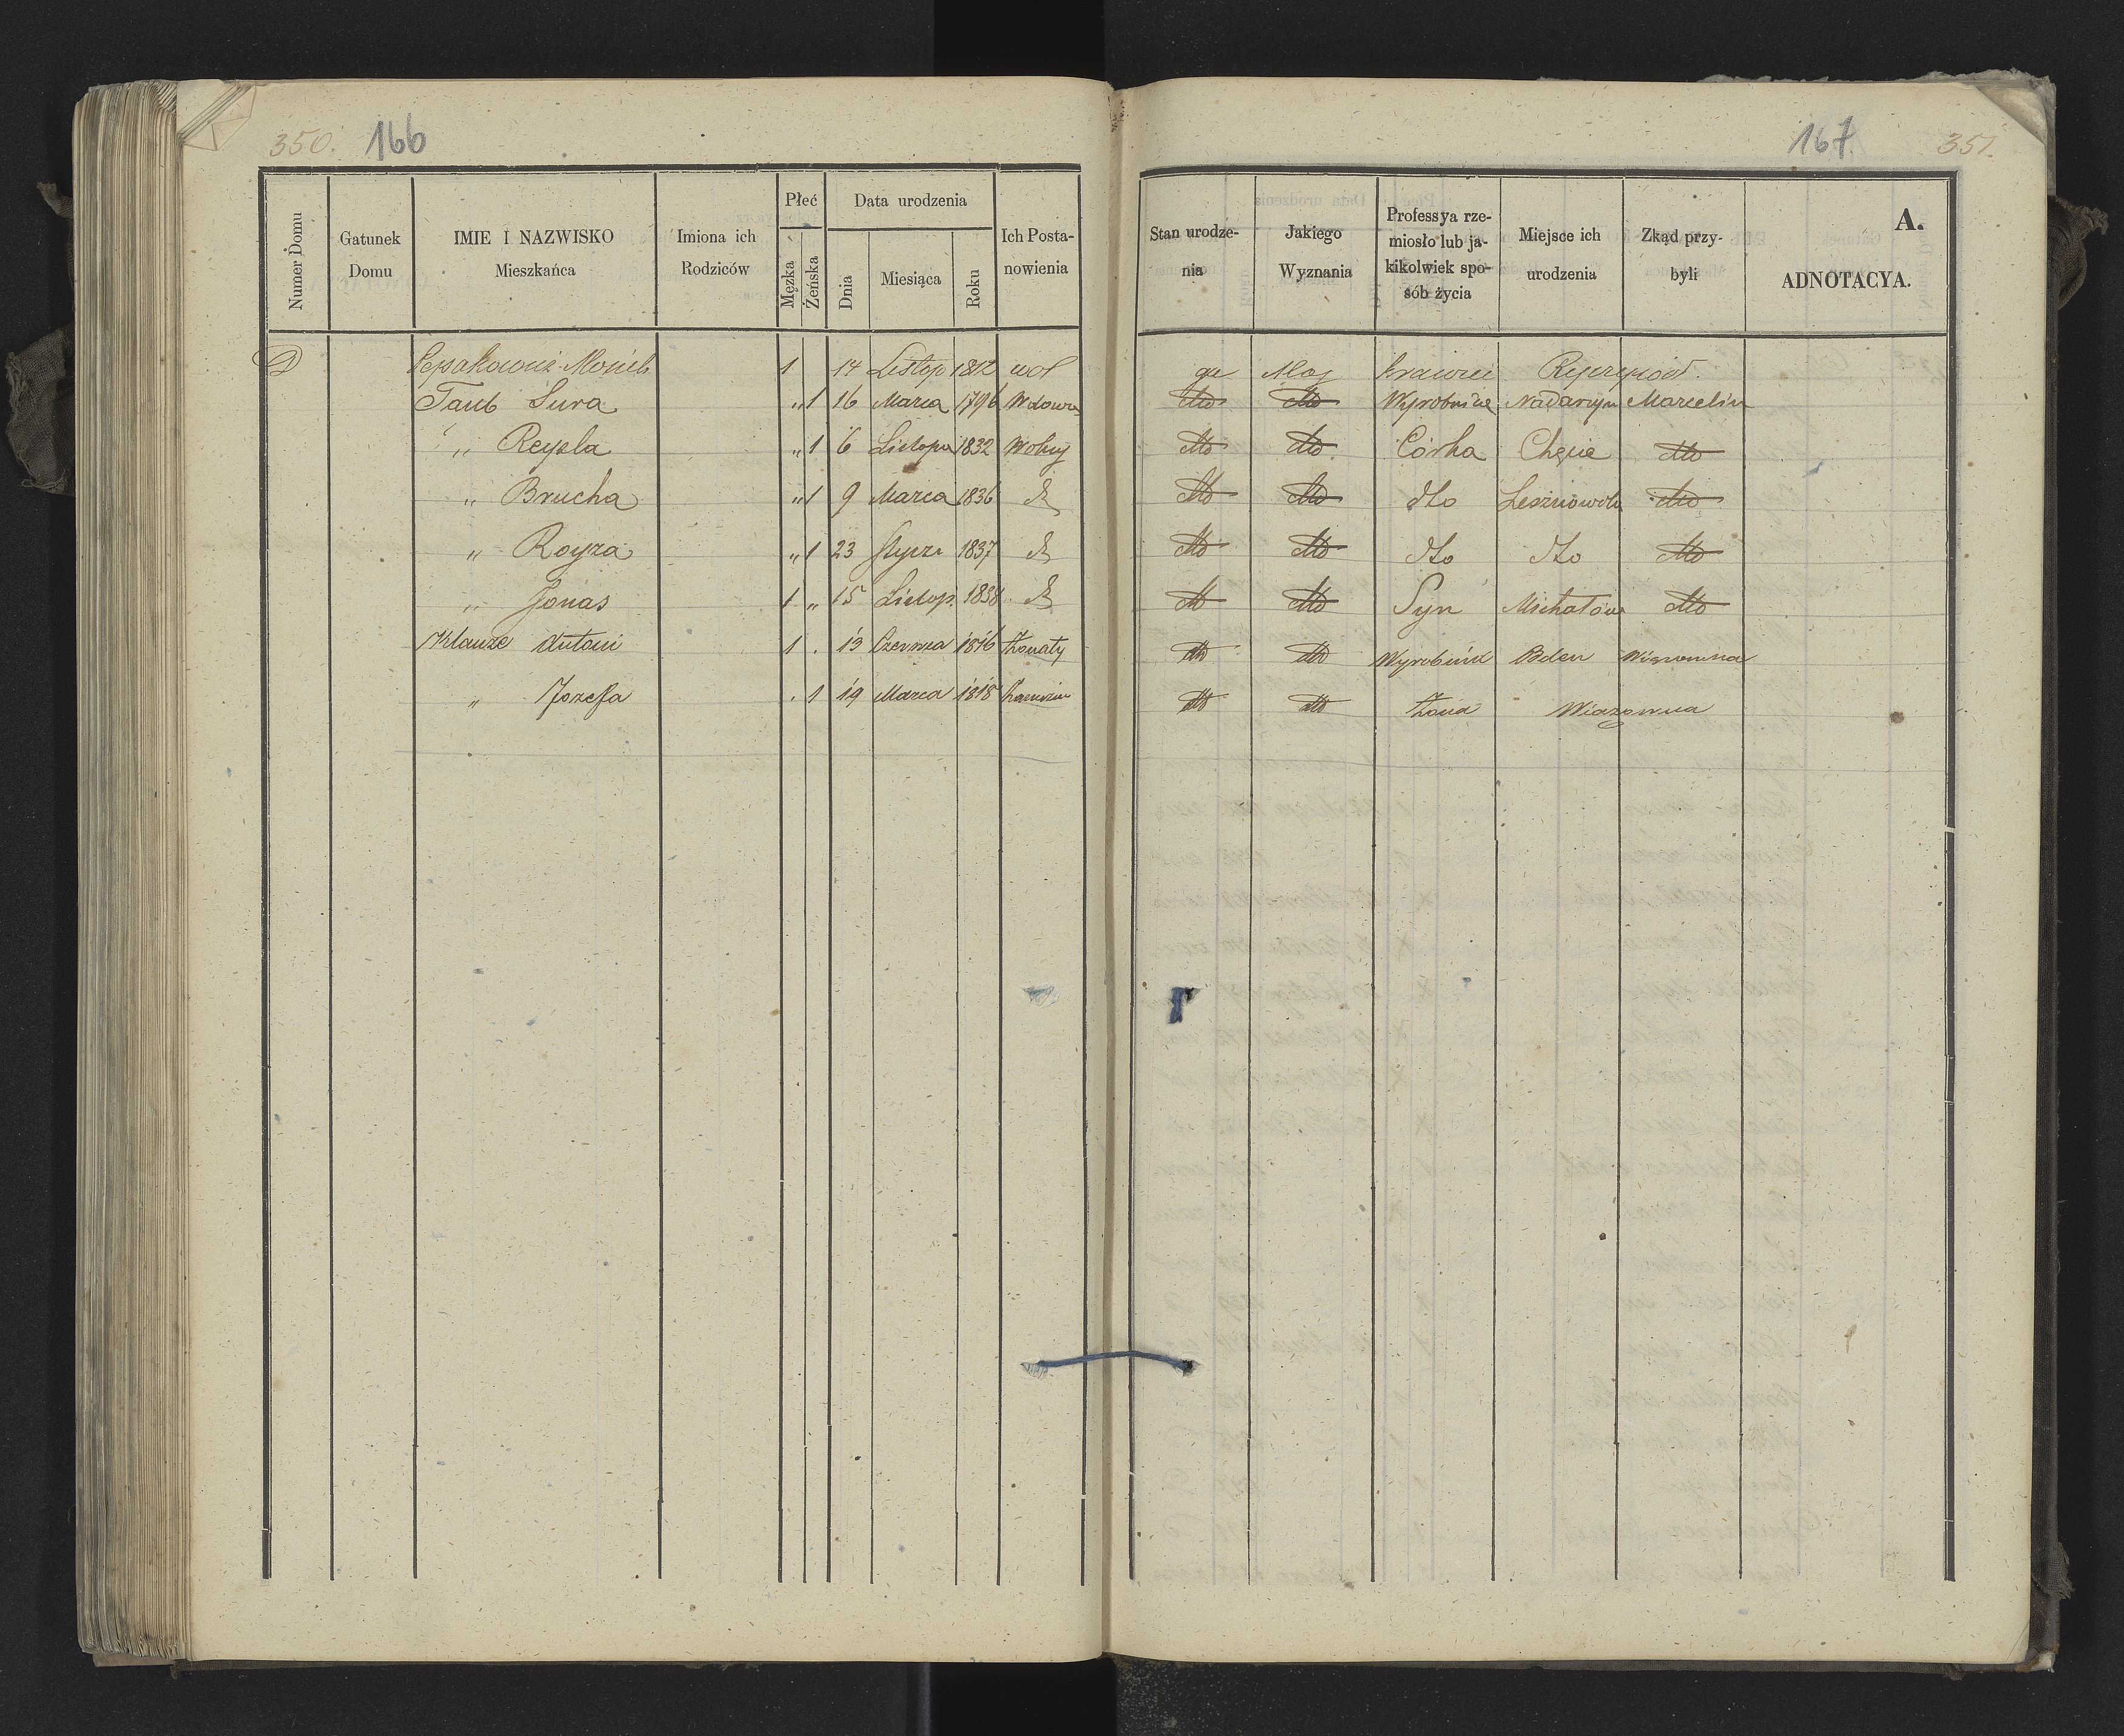 350. 166
Numer Domu | Gatunek Domu | IMIE I NAZWISKO Mieszkańca | Imiona ich Rodziców | Płeć Męzka Żeńska | Data urodzenia Dnia Miesiąca Roku | Ich Posta-nowienia
1 14 Listop 1812 wol
Taub Sura „ 1 16 Marca 1796 Wdowa
„ Reyzla „ 1 6 Listopa 1832 Wolny
„ Brucha „ 1 9 Marca 1836
„ Royza „ 1 23 Stycz 1837
„ Jonas 1 „ 15 Listop. 1838
Klauze Antoni 1 . 13 Czerwca 1816 Żonaty
„ Jozefa . 1 19 Marca 1818
167. 351.
Stan urodze-nia | Jakiego Wyznania | Professya rze-miosło lub ja-kikolwiek spo-sób życia | Miejsce ich urodzenia | Zkąd przy-byli | A. ADNOTACYA.
Moj
dto dto Wyrobnica Nadarzyn Marcelin
dto dto Córka dto
dto dto dto dto
dto dto dto dto dto
dto dto Syn Michałów dto
dto dto Wyrobnik
dto dto Żona Wiazowna